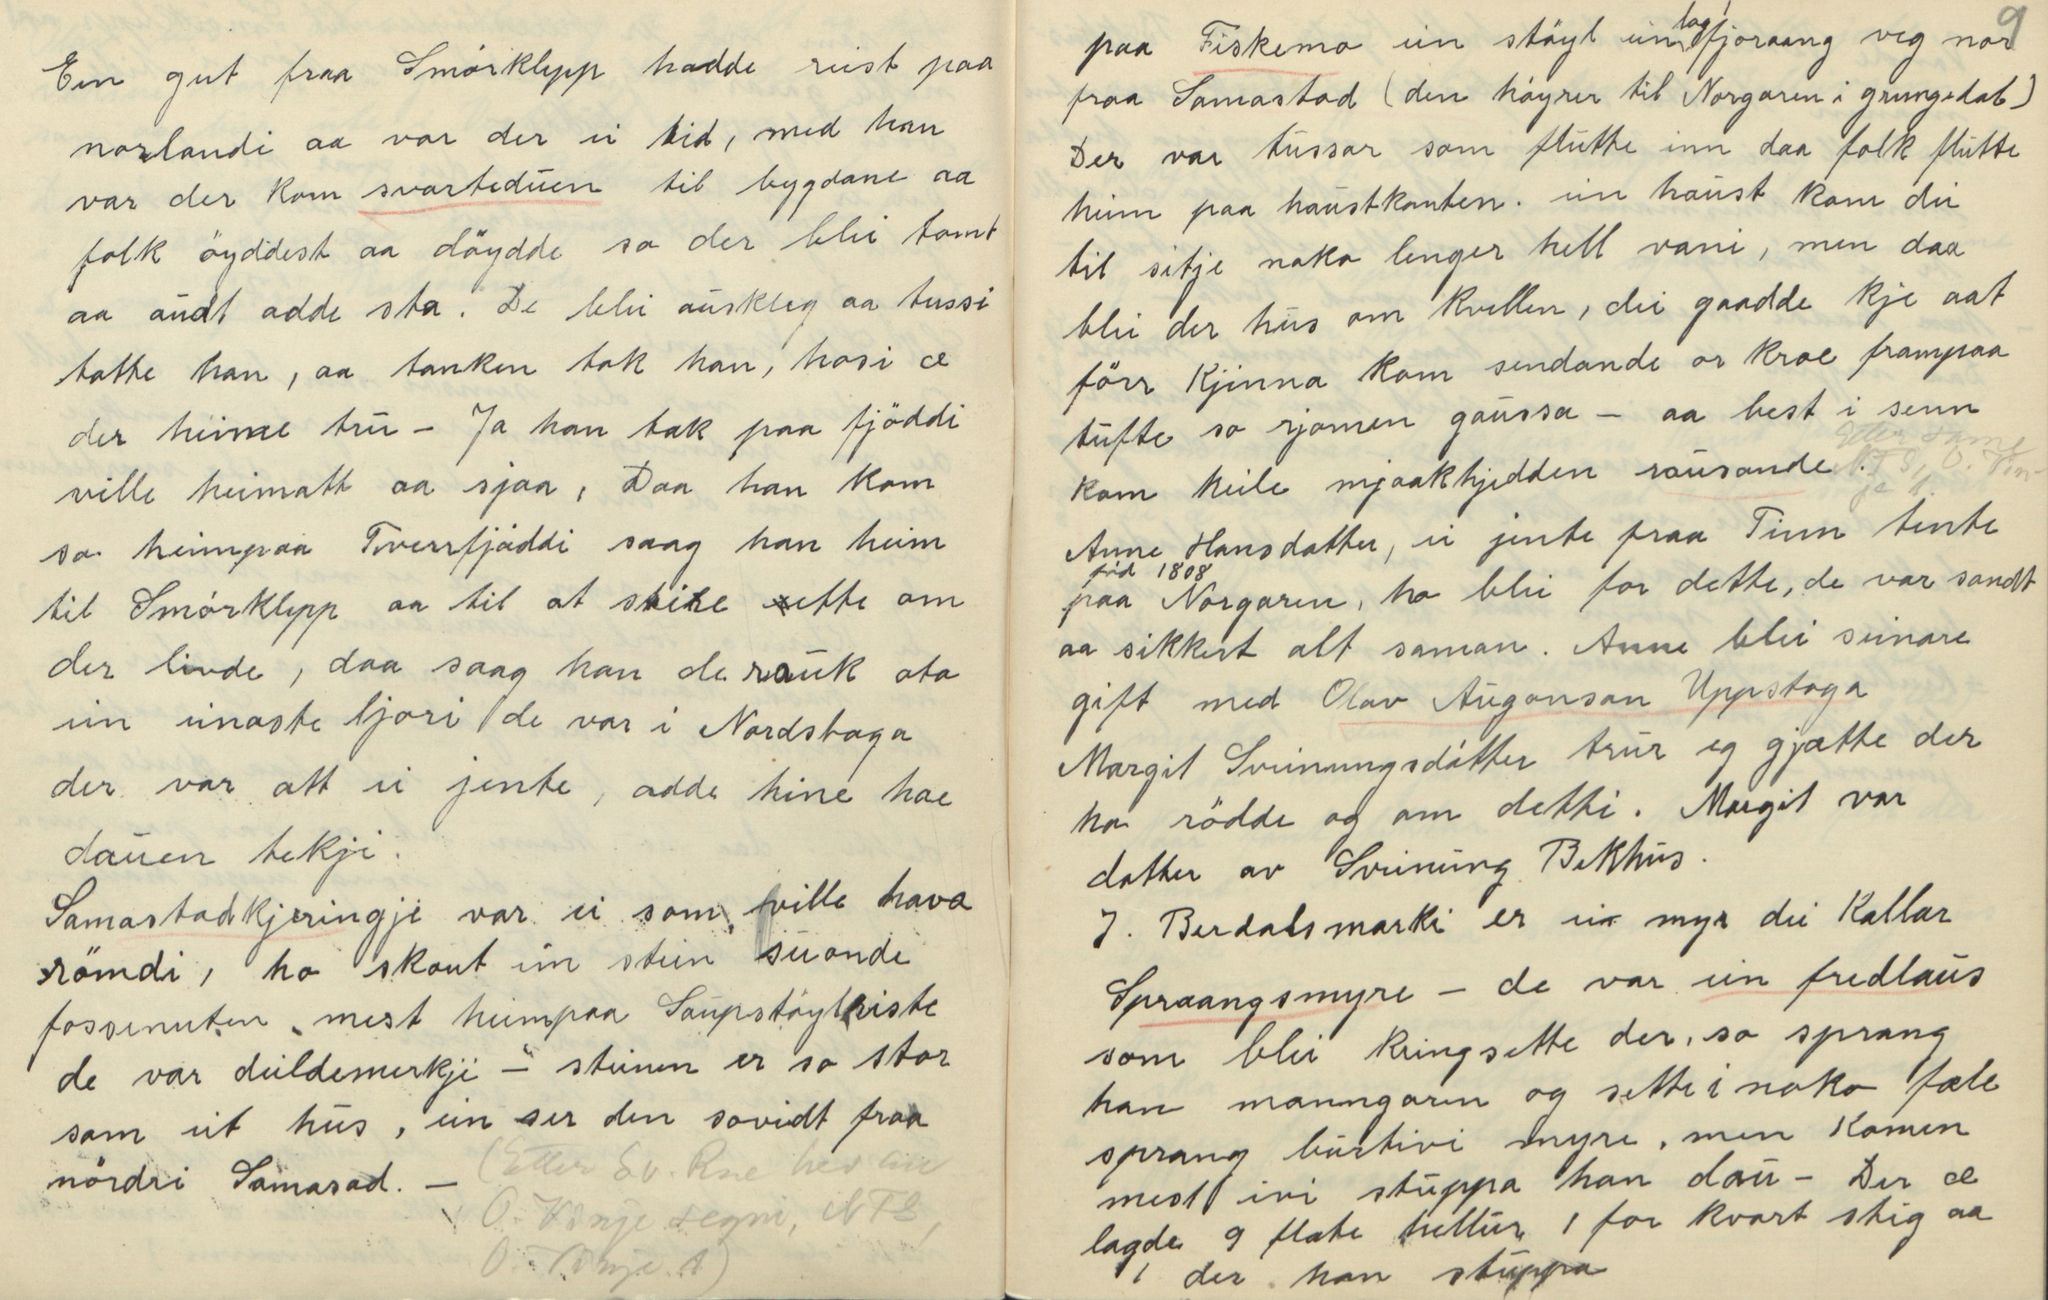 Ein gut fraa Smörklepp hadde reist paa
norlandi aa var der ei tid, med han
var der kom svartedauen til bygdane aa
folk öyddest aa döydde so der blei tomt
aa audt adde sta. De blei auskleg aa tussi
totte han, aa tanken tok han, hosi æ
der heime tru – Ja han tok paa fjöddi
ville heimatt aa sjaa, Daa han kom
so heimpaa Tverrfjöddi saag han heim
til Smörklepp aa til at sjaa ette om
der livde, daa saag han de rauk ota
ein einaste ljori de var i Nordstoga
der var att ei jente, adde hine hae
dauen tekji.
Samastadkjeringje var ei som ville hava
römdi, ho skaut ein stein suonde
fossenuten, mest heimpaa Saupstöylriste
de var deildemerkji – steinen er so stor
som eit hus, ein ser den sovidt fraa
nördri Samasad. –
(Etter Sv. Rue hev au
O. Vinje segni, NFS,
O. Vinje 1)
9
paa Fiskemo ein stöyl ein lag fjoraang veg nor
fraa Samastad (den höyrer til Norgaren i grungedal)
Der var tussar som flutte inn daa folk flutte
heim paa haustkanten. ein haust kom dei
til sitje noko lenger hell vani, men daa
blei der hus om kvellen, dei gaadde kje aat
förr kjinna kom sendande or kroe frampaa
tufte so rjomen gaussa – aa best i senn
kom heile mjaakhjedden rausande.
Etter same
NFS, O. Vin-
je 1.
Anne Hansdatter, ei jente fraa Tinn tente
föd 1808
paa Norgaren, ho blei for dette, de var sandt
aa sikkert alt saman. Anne blei seinare
gift med Olav Augonson Uppstoga
Margit Sveinungsdatter trur eg gjætte der
ho rödde og om detti. Margit var
datter av Sveinung Bekhus.
I. Berdalsmarki er ei myr dei kallar
Spraangsmyre – de var ein fredlaus
som blei kringsette der, so sprang
han manngaren og sette i noko fæle
sprang burtivi myre, men komen
mest ivi stuppa han dau – Der æ
lagde 9 flate hellur, 1 for kvart stig aa
1 der han stuppa